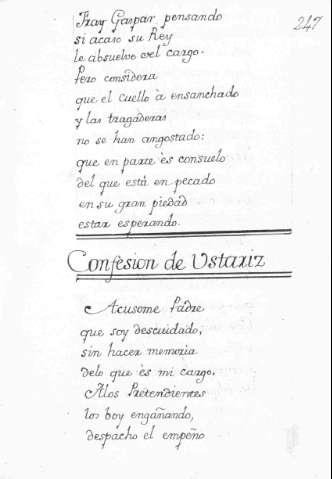 247
Fray Gaspar, pensando
si acaso su Rey
le absuelve del cargo.
Pero considera
que el cuello à ensanchado
y las tragaderas
no se han angostado:
que en parte ès consuelo
del que està en pecado
en su gran piedad
estar esperando.
Confesion de Ustariz
Acusome Padre
que soy descuidado,
sin hacer memoria
delo que ès mi cargo.
Alos Pretendientes
los boy engañando,
despacho el empeño